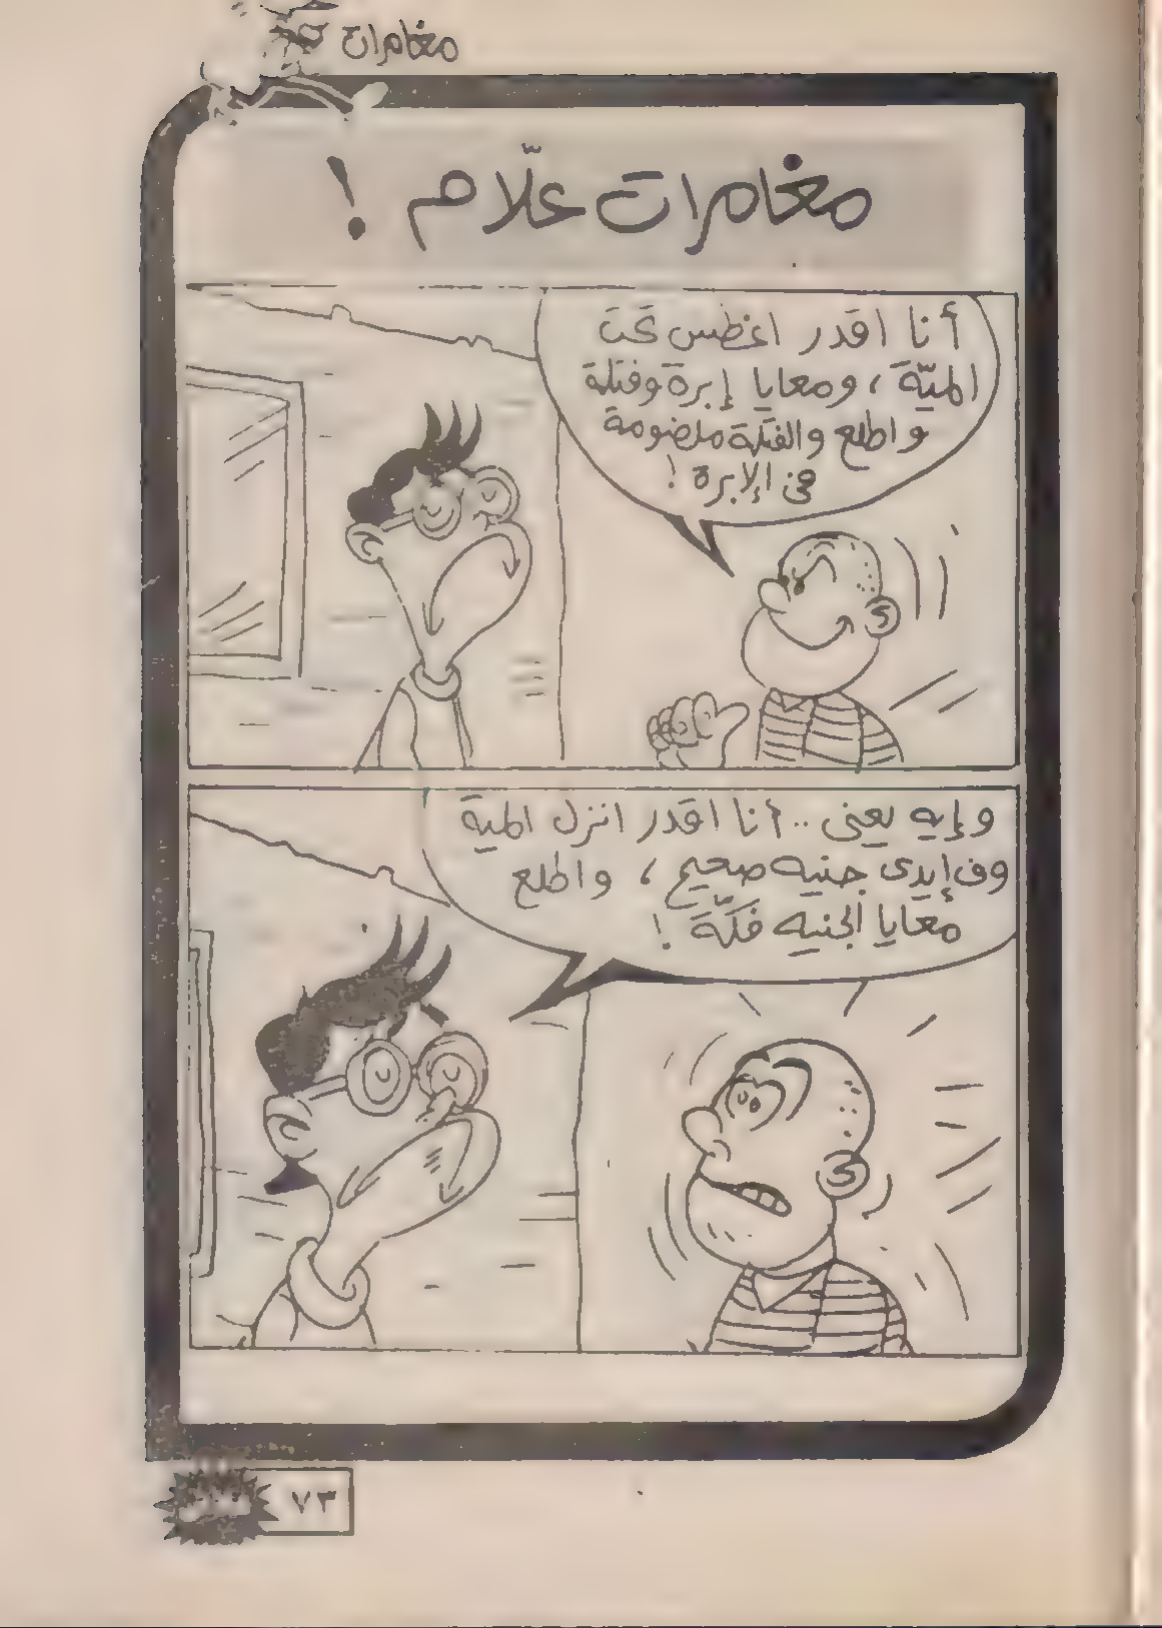 مغامرات
مغامرات علّام !
أنا اقدر اغطس تحت
الميّة ، ومعايا إبرة وفتلة
واطلع والفتلة ملضومة
فى الإبرة !
وإيه يعنى .. أنا اقدر انزل المية
وف إيدى جنيه صحيح ، واطلع
معايا الجنيه فكّة !
٧٣